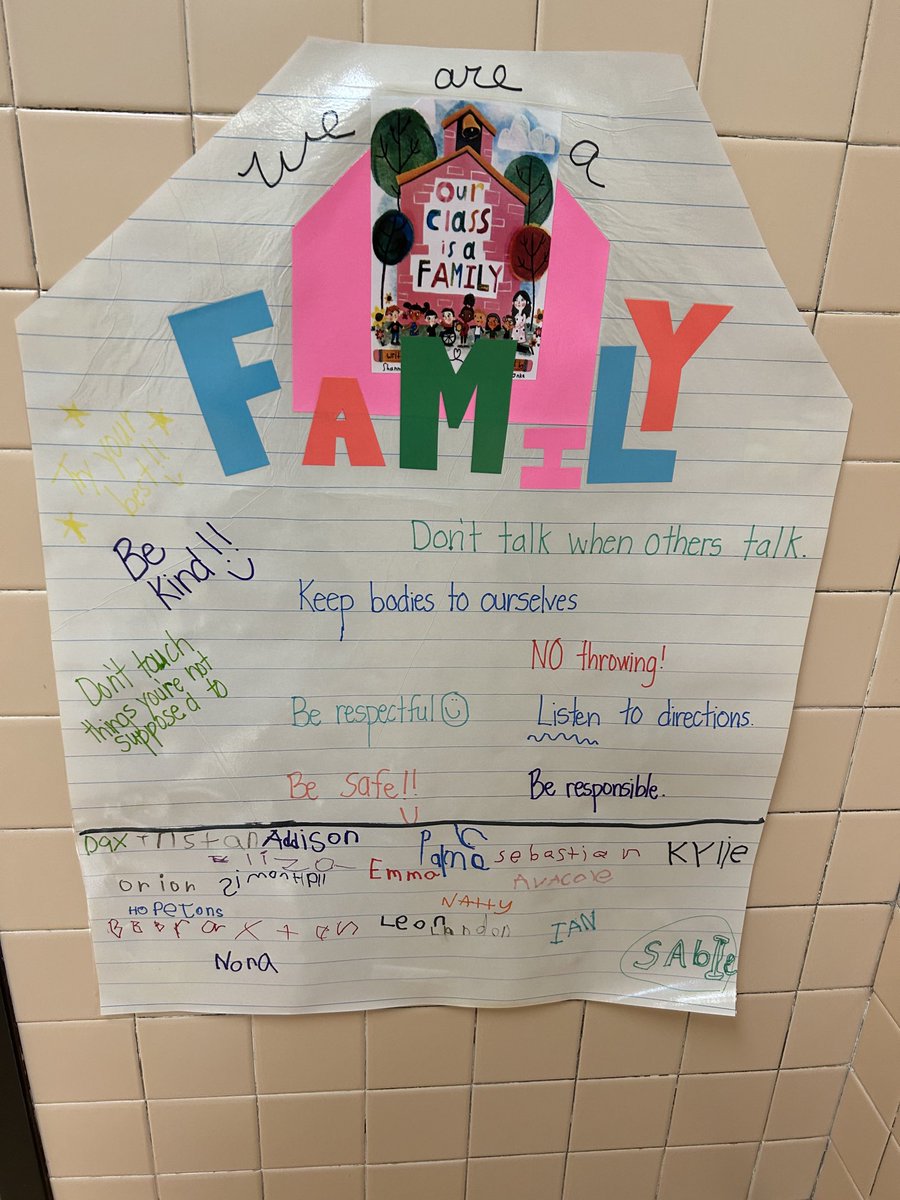 we are a
Our
class
is a
FAMILY
FAMILY
Try your
best!!
Be
Kind!!
Don't talk when others talk.
Keep bodies to ourselves
NO throwing!
Don't touch
things you're not
supposed to
Be respectful
Listen to directions.
Be safe!!
Be responsible.
Dax Tristan Addison Palma sebastian KYlie
Eliza Emma
orion AVACole
HOPetons NAtty
Leon Landon IAN
Nora SAbIe